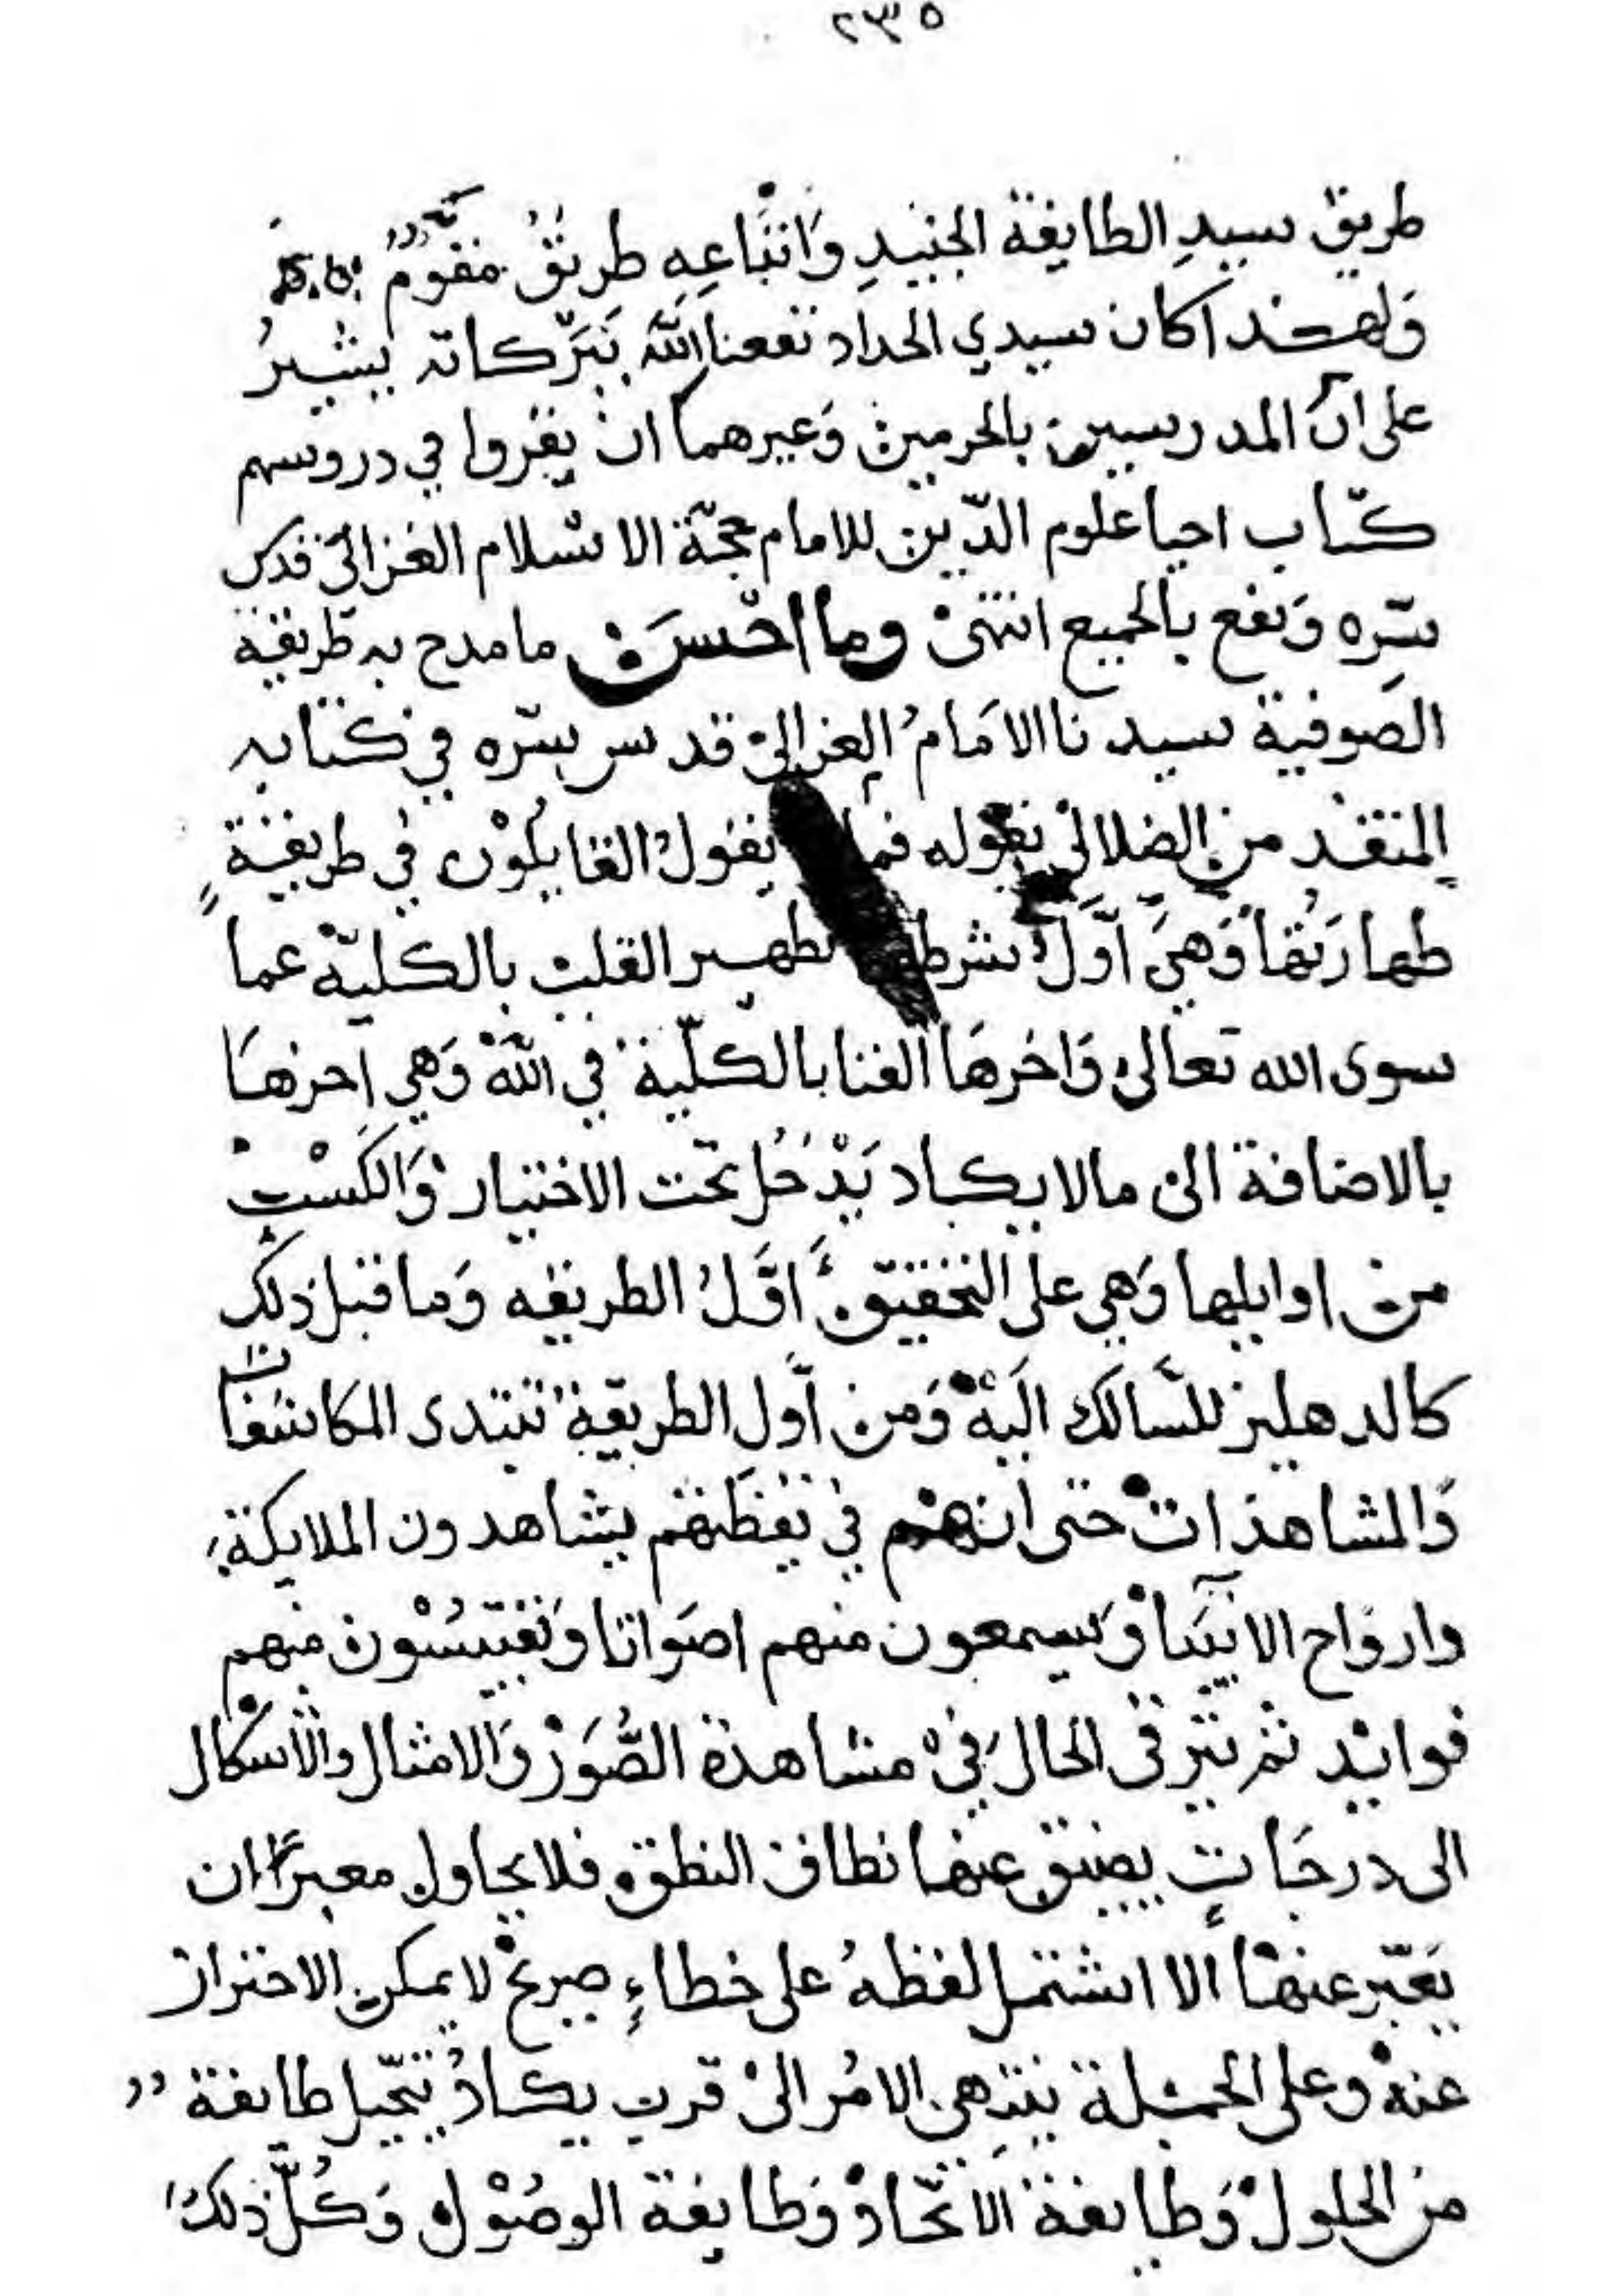 ٢٣٥
طريق سيدِ الطايفة الجنيدِ وَاتباعِهِ طريقُ مقوَّمُ
وَلهذا كان سيدي الحداد نفعنا اللّه ببَرَكاته يشيرُ
على انّ المدرسين بالحرمين وَغيرهما ان يقروا في دروسهم
كتاب احيا علوم الدّين للامام حجّة الاسلام الغزالي قدس
سّره وَنفع بالجميع انتهى وما احْسَن ما مدح به طريقة
الصَوفية سيدنا الامَامُ الغزالي قدس سّره في كتابه
المنقذ من الضلال بقوله فما يقول القايلُوْن في طريقةٍ
طهارَتُها وَهيَ اَوَّلُ شرطها تطهير القلب بالكليّة عما
سوى الله تعالى وَاخرهَا الفنا بالكلّية في اللّه وَهي اخرهَا
بالاضافة الى ما لا يكاد يَدْخُل تحت الاختيار وَالكَسْب
من اوايلها وَهي على التحقيق اَوَّلُ الطريقه وَما قبل ذلك
كالدهليز للسَّالك الَيْهْ وَمن اَوّلِ الطريقة تبتدى المكاشفات
وَالمشاهدات حتى انهم في يقظتهم يشاهدون الملايكة
وارواح الانبيَآ وَيسمعون منهم اصَواتا وَيقتبسُوْن منهم
فوايد ثم يترقى الحال في مشاهدة الصُّوَرْ وَالامثال والاشكال
الى درجَاتٍ يضيق عنها نطاق النطق فلا يحاول معبرًا ان
يَعّبر عنهَا الا اشتمل لفظهُ على خطاءٍ صريح لا يمكن الاحتراز
عنهْ وعلى الجملة ينتهى الامُر الى قرب يكادُ يتخّيل طايفة
من الحلول وَطايفة الاتّحاد وَطايفة الوصُوْل وَكُلّ ذلك